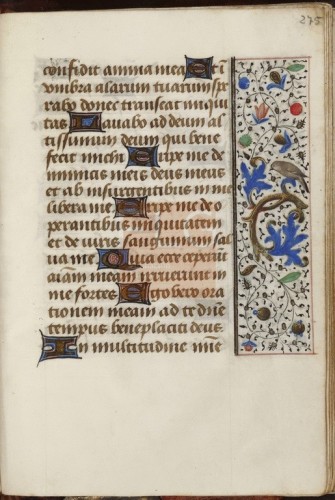 275
confidit anima mea Et i
vmbra alarum tuarum spe
rabo donec transeat iniqui
tas Clamabo ad deum al
tissimum deum qui bene
fecit michi Eripe me de
inimicis meis deus meus
et ab insurgentibus in me
libera me Eripe me de o
perantibus iniquitatem
et de viris sanguinum sal
ua me Quia ecce ceperūt
aīam meam irruerunt in
me fortes Ego vero ora
tionem meam ad te dn̄e
tempus beneplaciti deus
In multitudine mīe